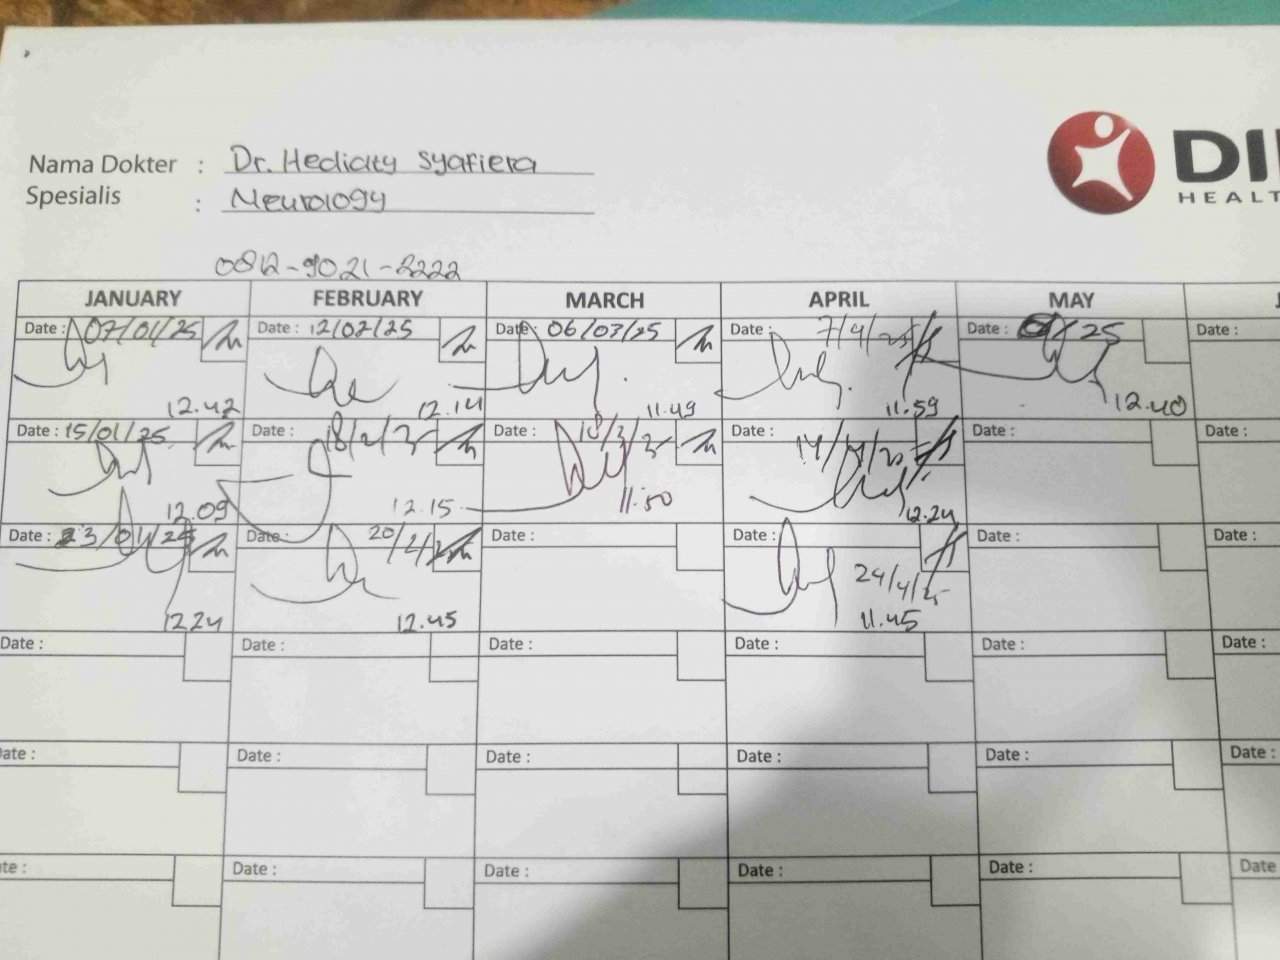 Nama Dokter : Dr. Hediaty Syafiera
Spesialis : Neurology
DI
HEALT
0812-9021-2222
JANUARY FEBRUARY MARCH APRIL MAY J
Date : 07/01/25 Date : 12/02/25 Date : 06/03/25 Date : 7/4/25 Date : /25 Date :
12.42 12.14 11.49 11.59 12.40
Date : 15/01/25 Date : 18/2/25 Date : 18/3/25 Date : 14/4/25 Date : Date :
12.09 12.15 11.50 12.24
Date : 23/01/25 Date : 20/2/25 Date : Date : Date : Date :
24/4/25
12.24 12.45 11.45
Date : Date : Date : Date : Date : Date :
ate : Date : Date : Date : Date : Date :
te : Date : Date : Date : Date : Date